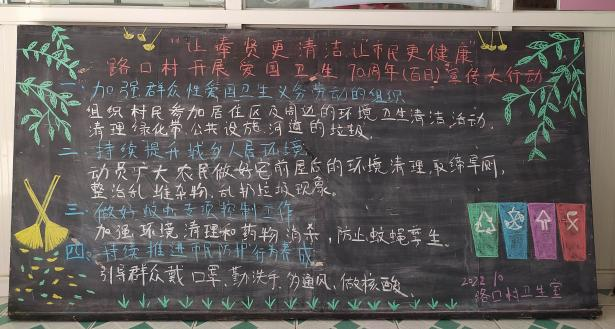 “让奉贤更清洁,让市民更健康”
路口村开展爱国卫生70周年(百日)宣传大行动
一、加强群众性爱国卫生义务劳动的组织
组织村民参加居住区及周边的环境卫生清洁活动,
清理绿化带、公共设施、河道的垃圾。
二、持续提升城乡人居环境
动员广大农民做好宅前屋后的环境清理,取缔旱厕,
整治乱堆杂物,乱扔垃圾现象。
三、做好蚊虫 控制工作
加强环境清理和药物消杀,防止蚊蝇孳生。
四、持续推进市民防护行为养成
引导群众戴口罩、勤洗手、勿通风、做核酸。
2022.10
路口村卫生室